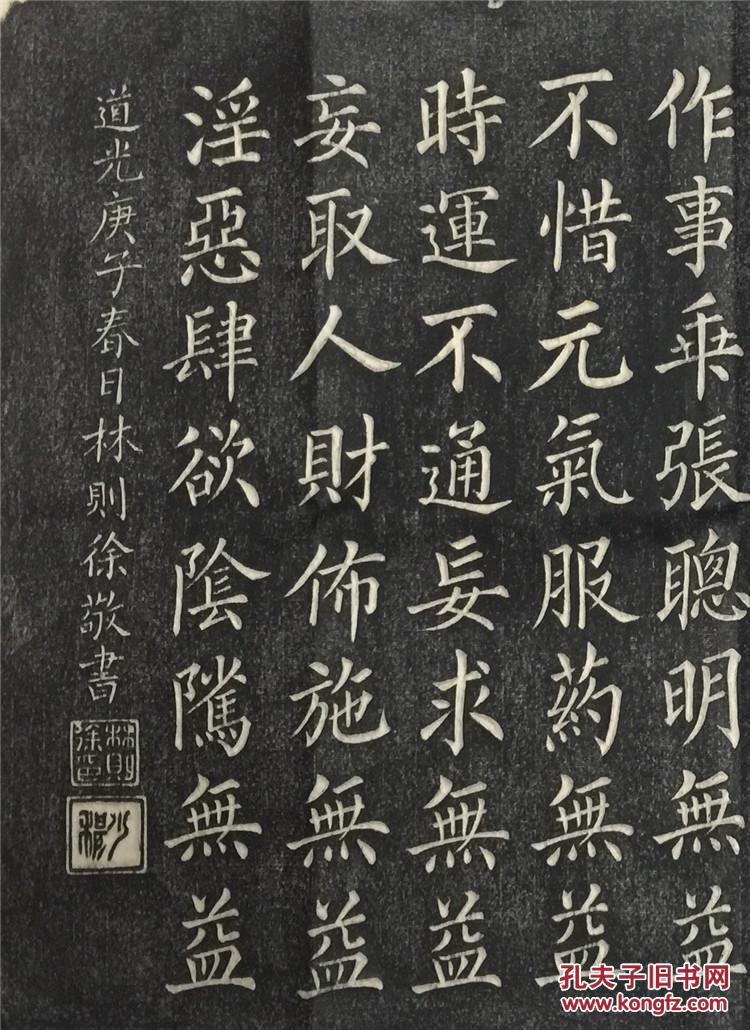 作事乗張聰明無益
不惜元氣服葯無益
時運不通妄求無益
妄取人財佈施無益
淫惡肆欲陰隲無益
道光庚子春日林則徐敬書
林則徐印
少穆
孔夫子旧书网
www.kongfz.com